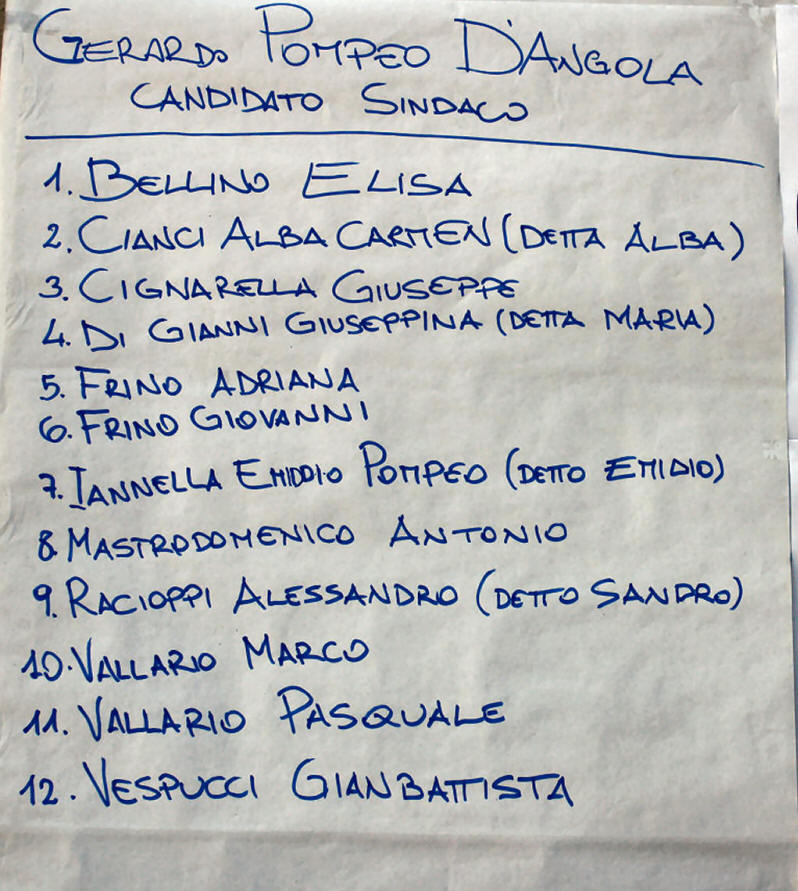 GERARDO POMPEO D'ANGOLA
CANDIDATO SINDACO
1. BELLINO ELISA
2. CIANCI ALBA CARMEN (DETTA ALBA)
3. CIGNARELLA GIUSEPPE
4. DI GIANNI GIUSEPPINA (DETTA MARIA)
5. FRINO ADRIANA
6. FRINO GIOVANNI
7. IANNELLA EMIDDIO POMPEO (DETTO EMIDIO)
8. MASTRODOMENICO ANTONIO
9. RACIOPPI ALESSANDRO (DETTO SANDRO)
10. VALLARIO MARCO
11. VALLARIO PASQUALE
12. VESPUCCI GIANBATTISTA